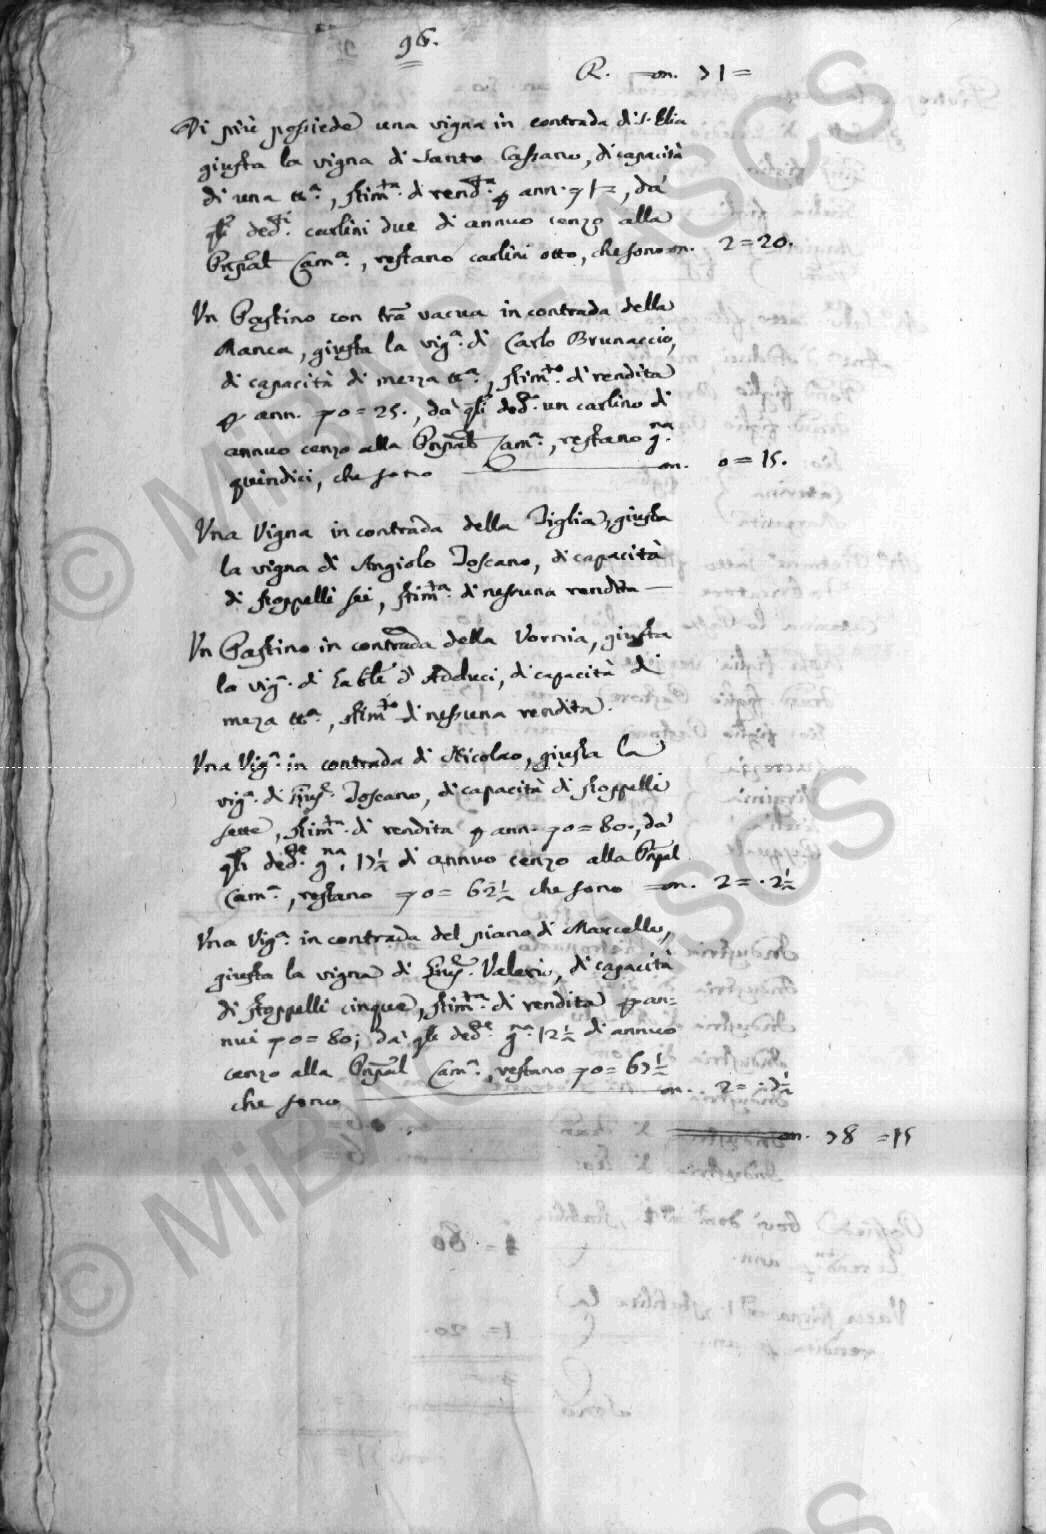 96.
R. — on. 71 =
Di più possiede una vigna in contrada di S. Elia
giusta la vigna di Santo Cassano, di capacità
di una tta., stimta. di rendta. p ann. 71=, da
qli dedti. carlini due di annuo cenzo alla
Camra., restano carlini otto, che sono on. 2=20.
Un Pastino con trã vacua in contrada della
Manca, giusta la viga. di Carlo Brunaccio,
di capacità di mezza tta., stimto. di rendita
p ann. 70=25., da qli dedti. un carlino di
annuo cenzo alla Cama., restano gna.
quindici, che sono — on. 0=15.
Una Vigna in contrada della Tiglia, giusta
la vigna di Angiolo Toscano, di capacità
di stoppelli sei, stimta. di nessuna rendita —
Un Pastino in contrada della Vornia, giusta
la viga. di d'Adduci, di capacità di
meza tta., stimto. di nessuna rendita.
Una Viga. in contrada di Nicolao, giusta la
viga. di Toscano, di capacità di stoppelli
sette, stimta. di rendita p ann. 70=80., da
qli dedte. gna. 17½ di annuo cenzo alla
Cama., restano 70=62½ che sono — on. 2=.2½
Una Viga. in contrada del piano di Marcello,
giusta la vigna di Valerio, di capacità
di stoppelli cinque, stimta. di rendita p an=
nui 70=80; da qli dedte. gna. 12½ di annuo
cenzo alla Cama., restano 70=67½
che sono — on. 2=.7½
on. 78=15
© MiBAC - ASCS
© MiBAC - ASCS